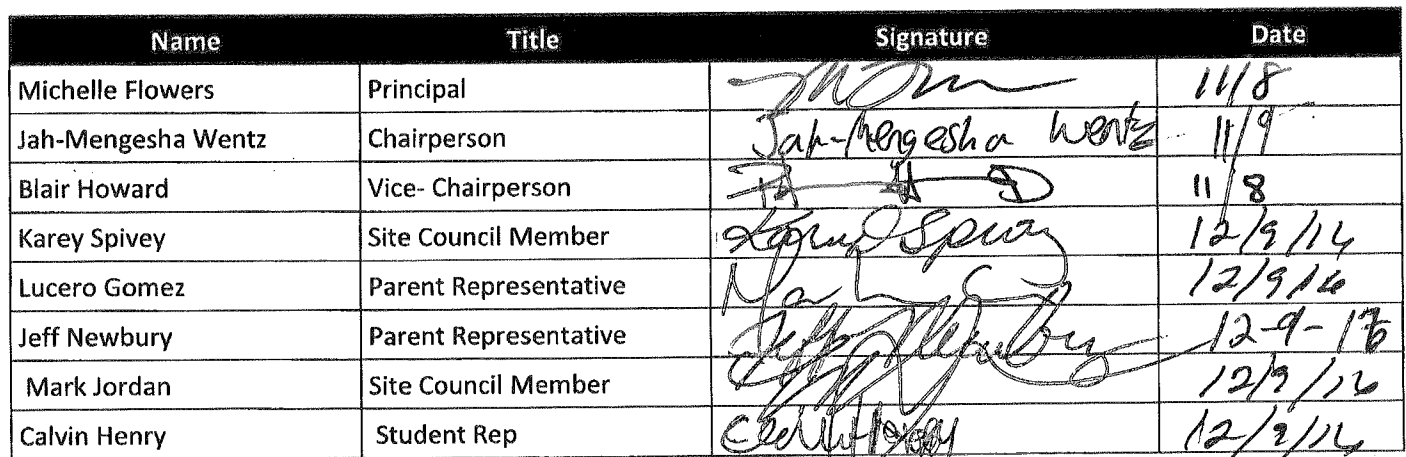 Name Title Signature Date
Michelle Flowers Principal 11/8
Jah-Mengesha Wentz Chairperson Jah-Mengesha Wentz 11/9
Blair Howard Vice- Chairperson 11/8
Karey Spivey Site Council Member Karey Spivey 12/9/16
Lucero Gomez Parent Representative 12/9/16
Jeff Newbury Parent Representative Jeff Newbury 12-9-16
Mark Jordan Site Council Member 12/9/16
Calvin Henry Student Rep 12/9/16